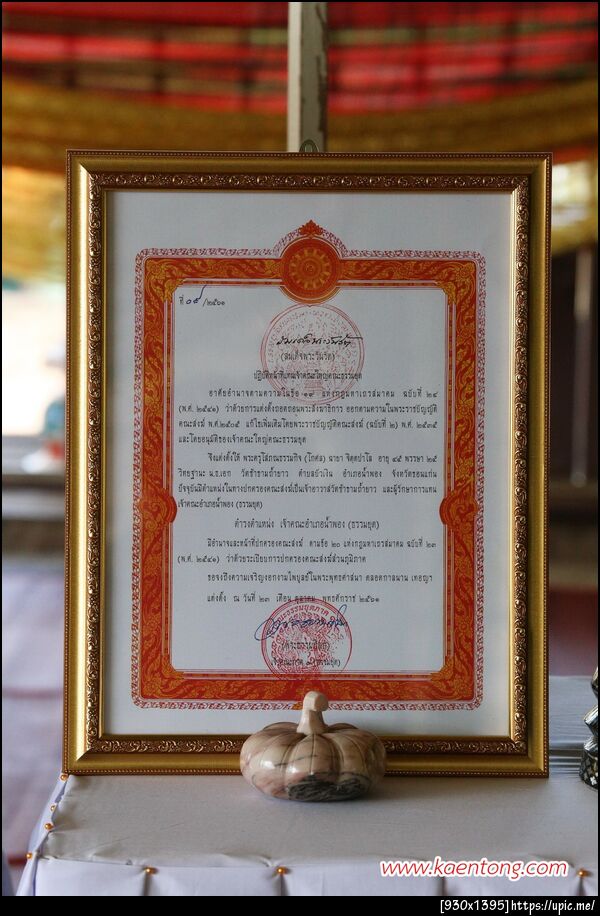 ที่ ๐๙/๒๕๖๑
(สมเด็จพระวันรัต)
ปฏิบัติหน้าที่แทนเจ้าคณะใหญ่คณะธรรมยุต
อาศัยอำนาจตามความในข้อ ๑๙ แห่งกฎมหาเถรสมาคม ฉบับที่ ๒๔
(พ.ศ. ๒๕๔๑) ว่าด้วยการแต่งตั้งถอดถอนพระสังฆาธิการ ออกตามความในพระราชบัญญัติ
คณะสงฆ์ พ.ศ.๒๕๐๕ แก้ไขเพิ่มเติมโดยพระราชบัญญัติคณะสงฆ์ (ฉบับที่ ๒) พ.ศ. ๒๕๓๕
และโดยอนุมัติของเจ้าคณะใหญ่คณะธรรมยุต
จึงแต่งตั้งให้ พระครูโสภณธรรมกิจ (โกศล) ฉายา จิตฺตปาโล อายุ ๔๕ พรรษา ๒๕
วิทยฐานะ น.ธ.เอก วัดป่าชามถ้ำยาว ตำบลบัวเงิน อำเภอน้ำพอง จังหวัดขอนแก่น
ปัจจุบันมีตำแหน่งในทางปกครองคณะสงฆ์เป็นเจ้าอาวาส และผู้รักษาการแทน
เจ้าคณะอำเภอน้ำพอง (ธรรมยุต)
ดำรงตำแหน่ง เจ้าคณะอำเภอน้ำพอง (ธรรมยุต)
มีอำนาจและหน้าที่ปกครองคณะสงฆ์ ตามข้อ ๒๐ แห่งกฎมหาเถรสมาคม ฉบับที่ ๒๓
(พ.ศ. ๒๕๔๑) ว่าด้วยระเบียบการปกครองคณะสงฆ์ส่วนภูมิภาค
ขอจงถึงความเจริญงอกงามไพบูลย์ในพระพุทธศาสนา ตลอดกาลนาน เทอญฯ
แต่งตั้ง ณ วันที่ ๒๓ เดือน ตุลาคม พุทธศักราช ๒๕๖๑
www.kaentong.com
[930x1395]https://upic.me/